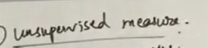 ) unsupervised measure.